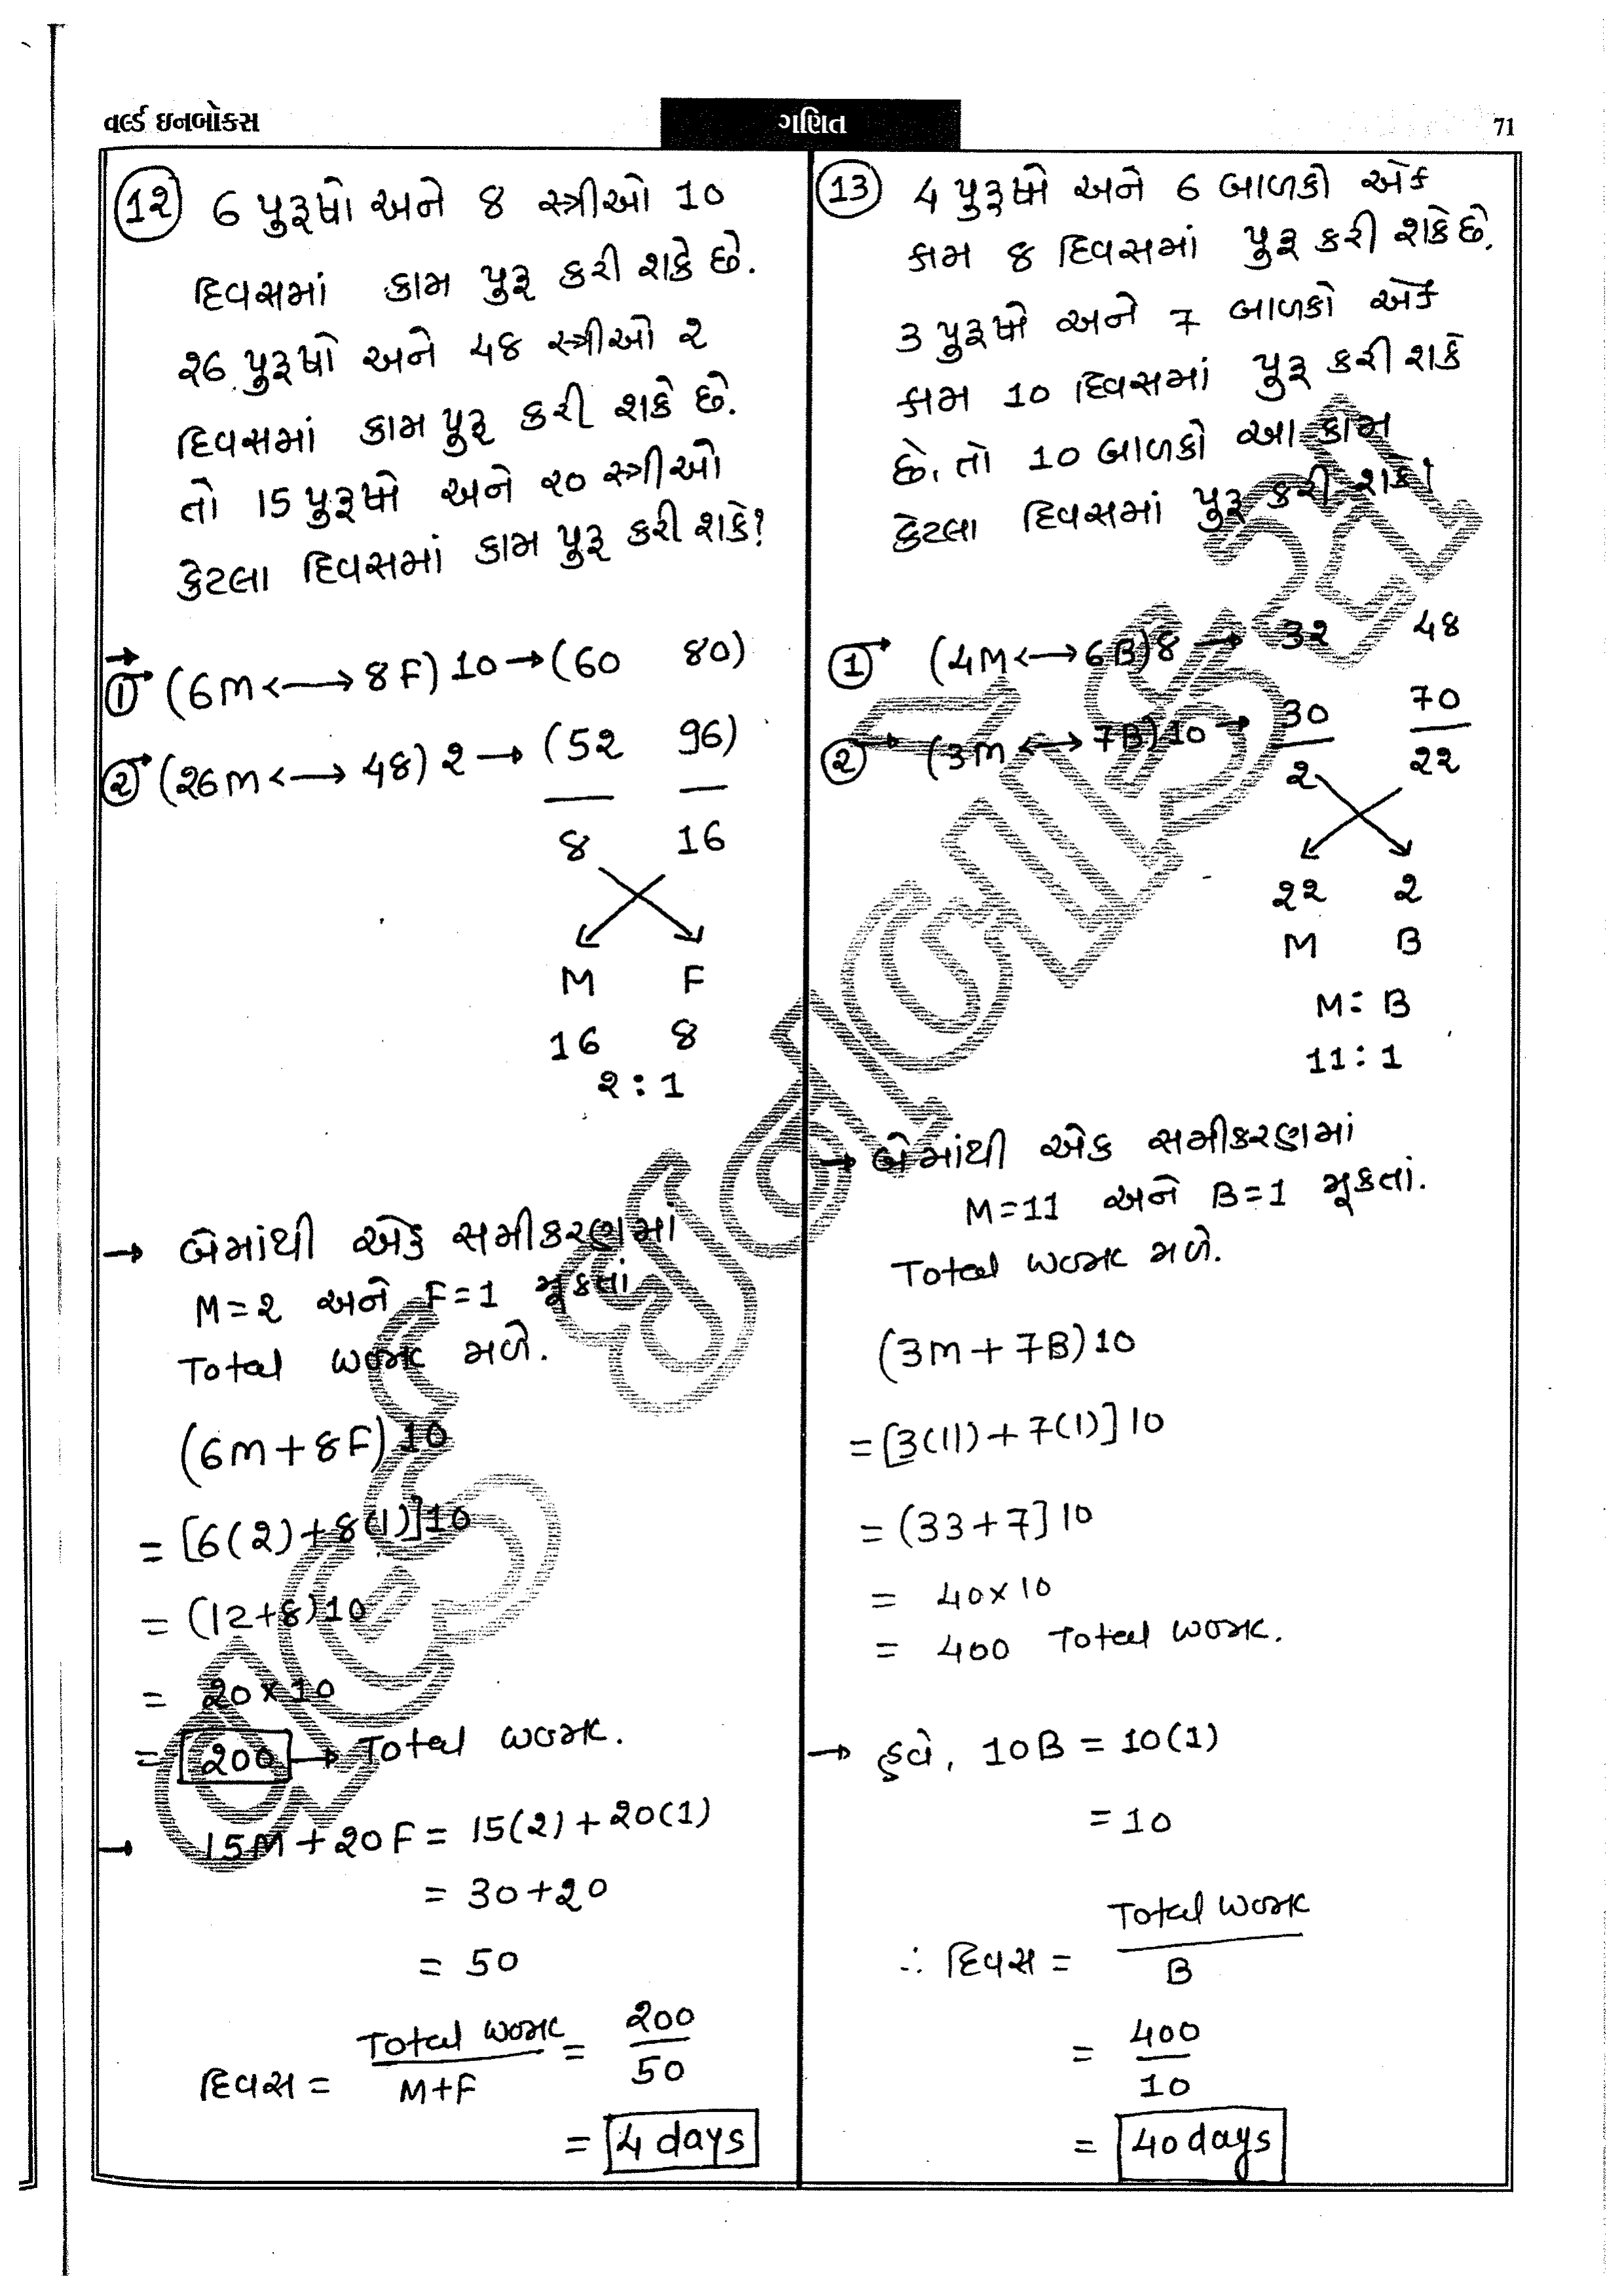 વર્લ્ડ ઇનબોક્સ
ગણિત
71
12 6 પુરૂષો અને 8 સ્ત્રીઓ 10
દિવસમાં કામ પુરૂ કરી શકે છે.
26 પુરૂષો અને 48 સ્ત્રીઓ 2
દિવસમાં કામ પુરૂ કરી શકે છે.
તો 15 પુરૂષો અને 20 સ્ત્રીઓ
કેટલા દિવસમાં કામ પુરૂ કરી શકે?
→
① → (6M <—> 8F) 10 → (60 80)
② → (26M <—> 48) 2 → (52 96)
8 16
M F
16 8
2 : 1
→ બેમાંથી એક સમીકરણમાં
M=2 અને F=1 મૂકતાં
Total work મળે.
(6M + 8F) 10
= [6(2) + 8(1)] 10
= (12+8) 10
= 20 × 10
= 200 → Total work.
→ 15M + 20F = 15(2) + 20(1)
= 30 + 20
= 50
દિવસ = Total work / M+F = 200 / 50
= 4 days
13 4 પુરૂષો અને 6 બાળકો એક
કામ 8 દિવસમાં પુરૂ કરી શકે છે.
3 પુરૂષો અને 7 બાળકો એક
કામ 10 દિવસમાં પુરૂ કરી શકે
છે. તો 10 બાળકો આ કામ
કેટલા દિવસમાં પુરૂ કરી શકે?
① → (4M <—> 6B) 8 → 32 48
② → (3M <—> 7B) 10 → 30 70
2 22
22 2
M B
M : B
11 : 1
→ બેમાંથી એક સમીકરણમાં
M=11 અને B=1 મૂકતાં.
Total work મળે.
(3M + 7B) 10
= [3(11) + 7(1)] 10
= (33+7] 10
= 40 × 10
= 400 Total work.
→ હવે, 10B = 10(1)
= 10
∴ દિવસ = Total work / B
= 400 / 10
= 40 days
વર્લ્ડ ઇનબોક્સ